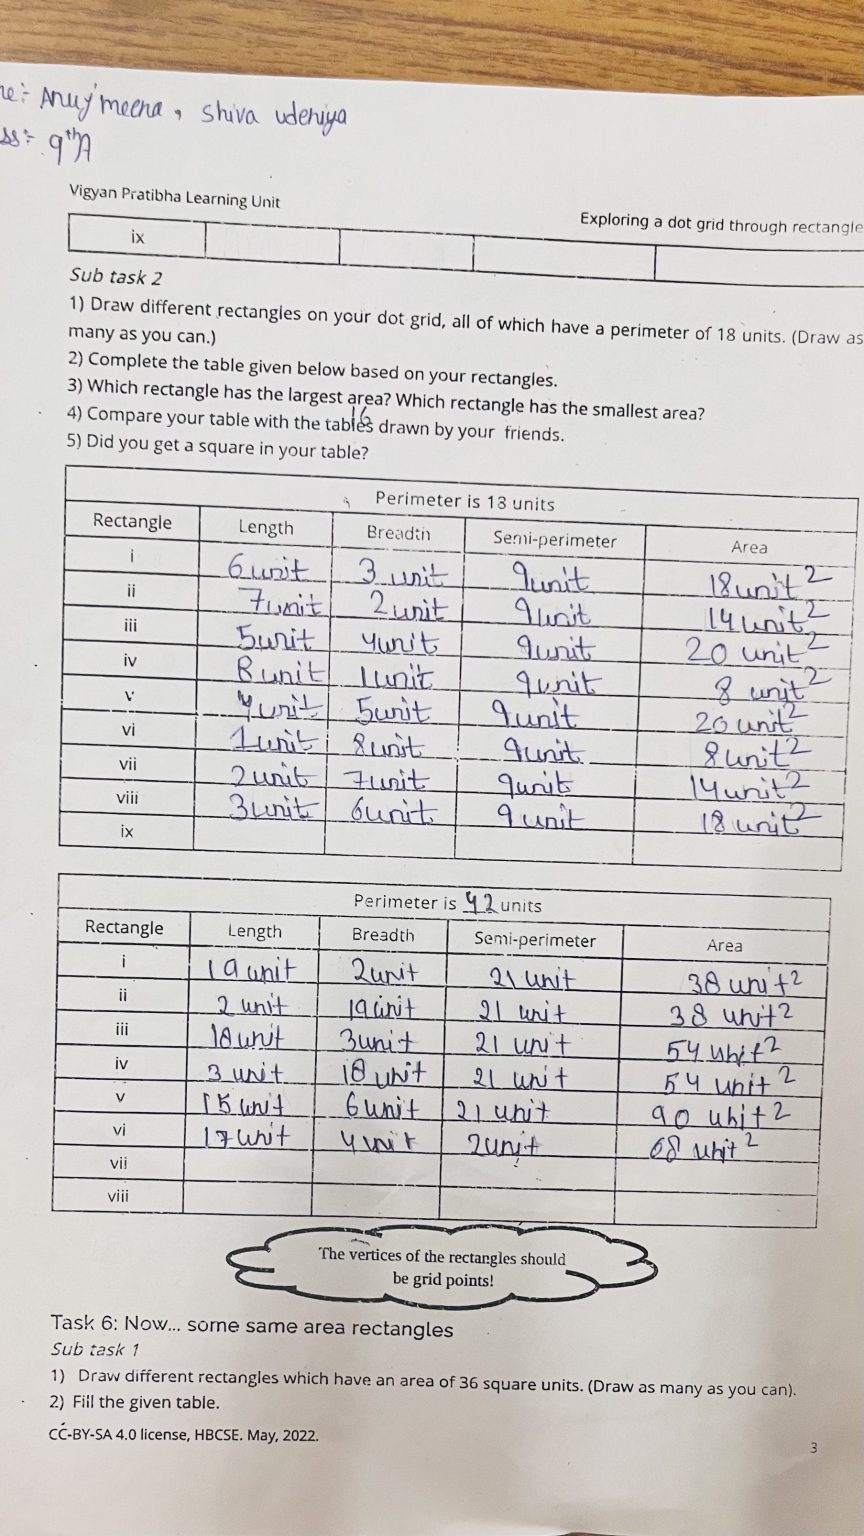 ne:- Anuj meena, Shiva udeniya
ss:- 9th A
Vigyan Pratibha Learning Unit
Exploring a dot grid through rectangle
ix
Sub task 2
1) Draw different rectangles on your dot grid, all of which have a perimeter of 18 units. (Draw as
many as you can.)
2) Complete the table given below based on your rectangles.
3) Which rectangle has the largest area? Which rectangle has the smallest area?
16
4) Compare your table with the tables drawn by your friends.
5) Did you get a square in your table?
Perimeter is 18 units
Rectangle Length Breadth Semi-perimeter Area
i 6 unit 3 unit 9unit 18unit2
ii 7unit 2unit 9unit 14unit2
iii 5unit 4unit 9unit 20 unit2
iv 8unit 1unit 9unit 8 unit2
v 4unit 5unit 9unit 20unit2
vi 1unit 8unit 9unit 8unit2
vii 2unit 7unit 9unit 14unit2
viii 3unit 6unit 9unit 18 unit2
ix
Perimeter is 42 units
Rectangle Length Breadth Semi-perimeter Area
i 19unit 2unit 21 unit 38 unit2
ii 2 unit 19unit 21 unit 38 unit2
iii 18unit 3unit 21 unit 54 unit2
iv 3 unit 18 unit 21 unit 54 unit2
v 15 unit 6unit 21 unit 90 unit2
vi 17unit 4unit 2unit 68 unit2
vii
viii
The vertices of the rectangles should
be grid points!
Task 6: Now... some same area rectangles
Sub task 1
1) Draw different rectangles which have an area of 36 square units. (Draw as many as you can).
2) Fill the given table.
CC-BY-SA 4.0 license, HBCSE. May, 2022.
3